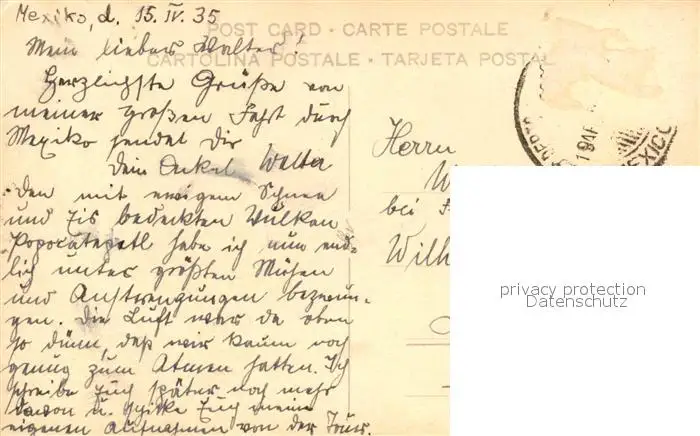 Mexiko, d. 15. IV. 35
POST CARD - CARTE POSTALE
CARTOLINA POSTALE - TARJETA POSTAL
Mein lieber Walter!
Herzlichste Grüße von
meiner großen Fahrt durch
Mexiko sendet Dir
Dein Onkel Walter
Den mit ewigem Schnee
und Eis bedeckten Vulkan
Popocatepetl habe ich nun end=
lich unter größten Mühen
und Anstrengungen bezwun-
gen. Die Luft war da oben
so dünn, daß wir kaum noch
genug zum Atmen hatten. Ich
schreibe Euch später noch mehr
davon u. schicke Euch meine
eigenen Aufnahmen von der Tour.
Herrn
W
bei
Wilh
MEXICO
privacy protection
Datenschutz